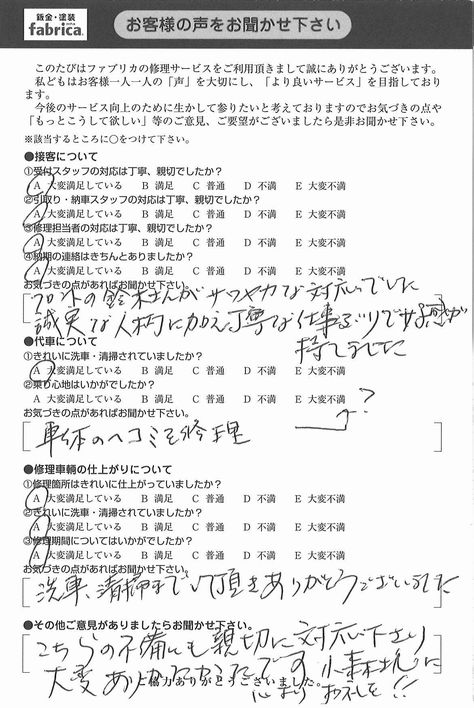 鈑金・塗装
fabrica.
お客様の声をお聞かせ下さい
このたびはファブリカの修理サービスをご利用頂きまして誠にありがとうございます。
私どもはお客様一人一人の「声」を大切にし、「より良いサービス」を目指しており
ます。
今後のサービス向上のために生かして参りたいと考えておりますのでお気づきの点や
「もっとこうして欲しい」等のご意見、ご要望がございましたら是非お聞かせ下さい。
※該当するところに○をつけて下さい。
●接客について
①受付スタッフの対応は丁寧、親切でしたか？
A 大変満足している B 満足 C 普通 D 不満 E 大変不満
②引取り・納車スタッフの対応は丁寧、親切でしたか？
A 大変満足している B 満足 C 普通 D 不満 E 大変不満
③修理担当者の対応は丁寧、親切でしたか？
A 大変満足している B 満足 C 普通 D 不満 E 大変不満
④納期の連絡はきちんとありましたか？
A 大変満足している B 満足 C 普通 D 不満 E 大変不満
お気づきの点があればお聞かせ下さい。
フロントの鈴木さんがサワヤカな対応でした
誠実な人柄に加え丁寧な仕事ぶりで好感が
持てました
●代車について
①きれいに洗車・清掃されていましたか？
A 大変満足している B 満足 C 普通 D 不満 E 大変不満
②乗り心地はいかがでしたか？
A 大変満足している B 満足 C 普通 D 不満 E 大変不満
お気づきの点があればお聞かせ下さい。
車体のヘコミを修理 ?
●修理車輌の仕上がりについて
①修理箇所はきれいに仕上がっていましたか？
A 大変満足している B 満足 C 普通 D 不満 E 大変不満
②きれいに洗車・清掃されていましたか？
A 大変満足している B 満足 C 普通 D 不満 E 大変不満
③修理期間についてはいかがでしたか？
A 大変満足している B 満足 C 普通 D 不満 E 大変不満
お気づきの点があればお聞かせ下さい。
洗車、清掃までして頂きありがとうございました
●その他ご意見がありましたらお聞かせ下さい。
こちらの不備にも親切に対応下さり
大変ありがたかったです 小森様に
ご協力ありがとうございました。
心よりお礼を!!